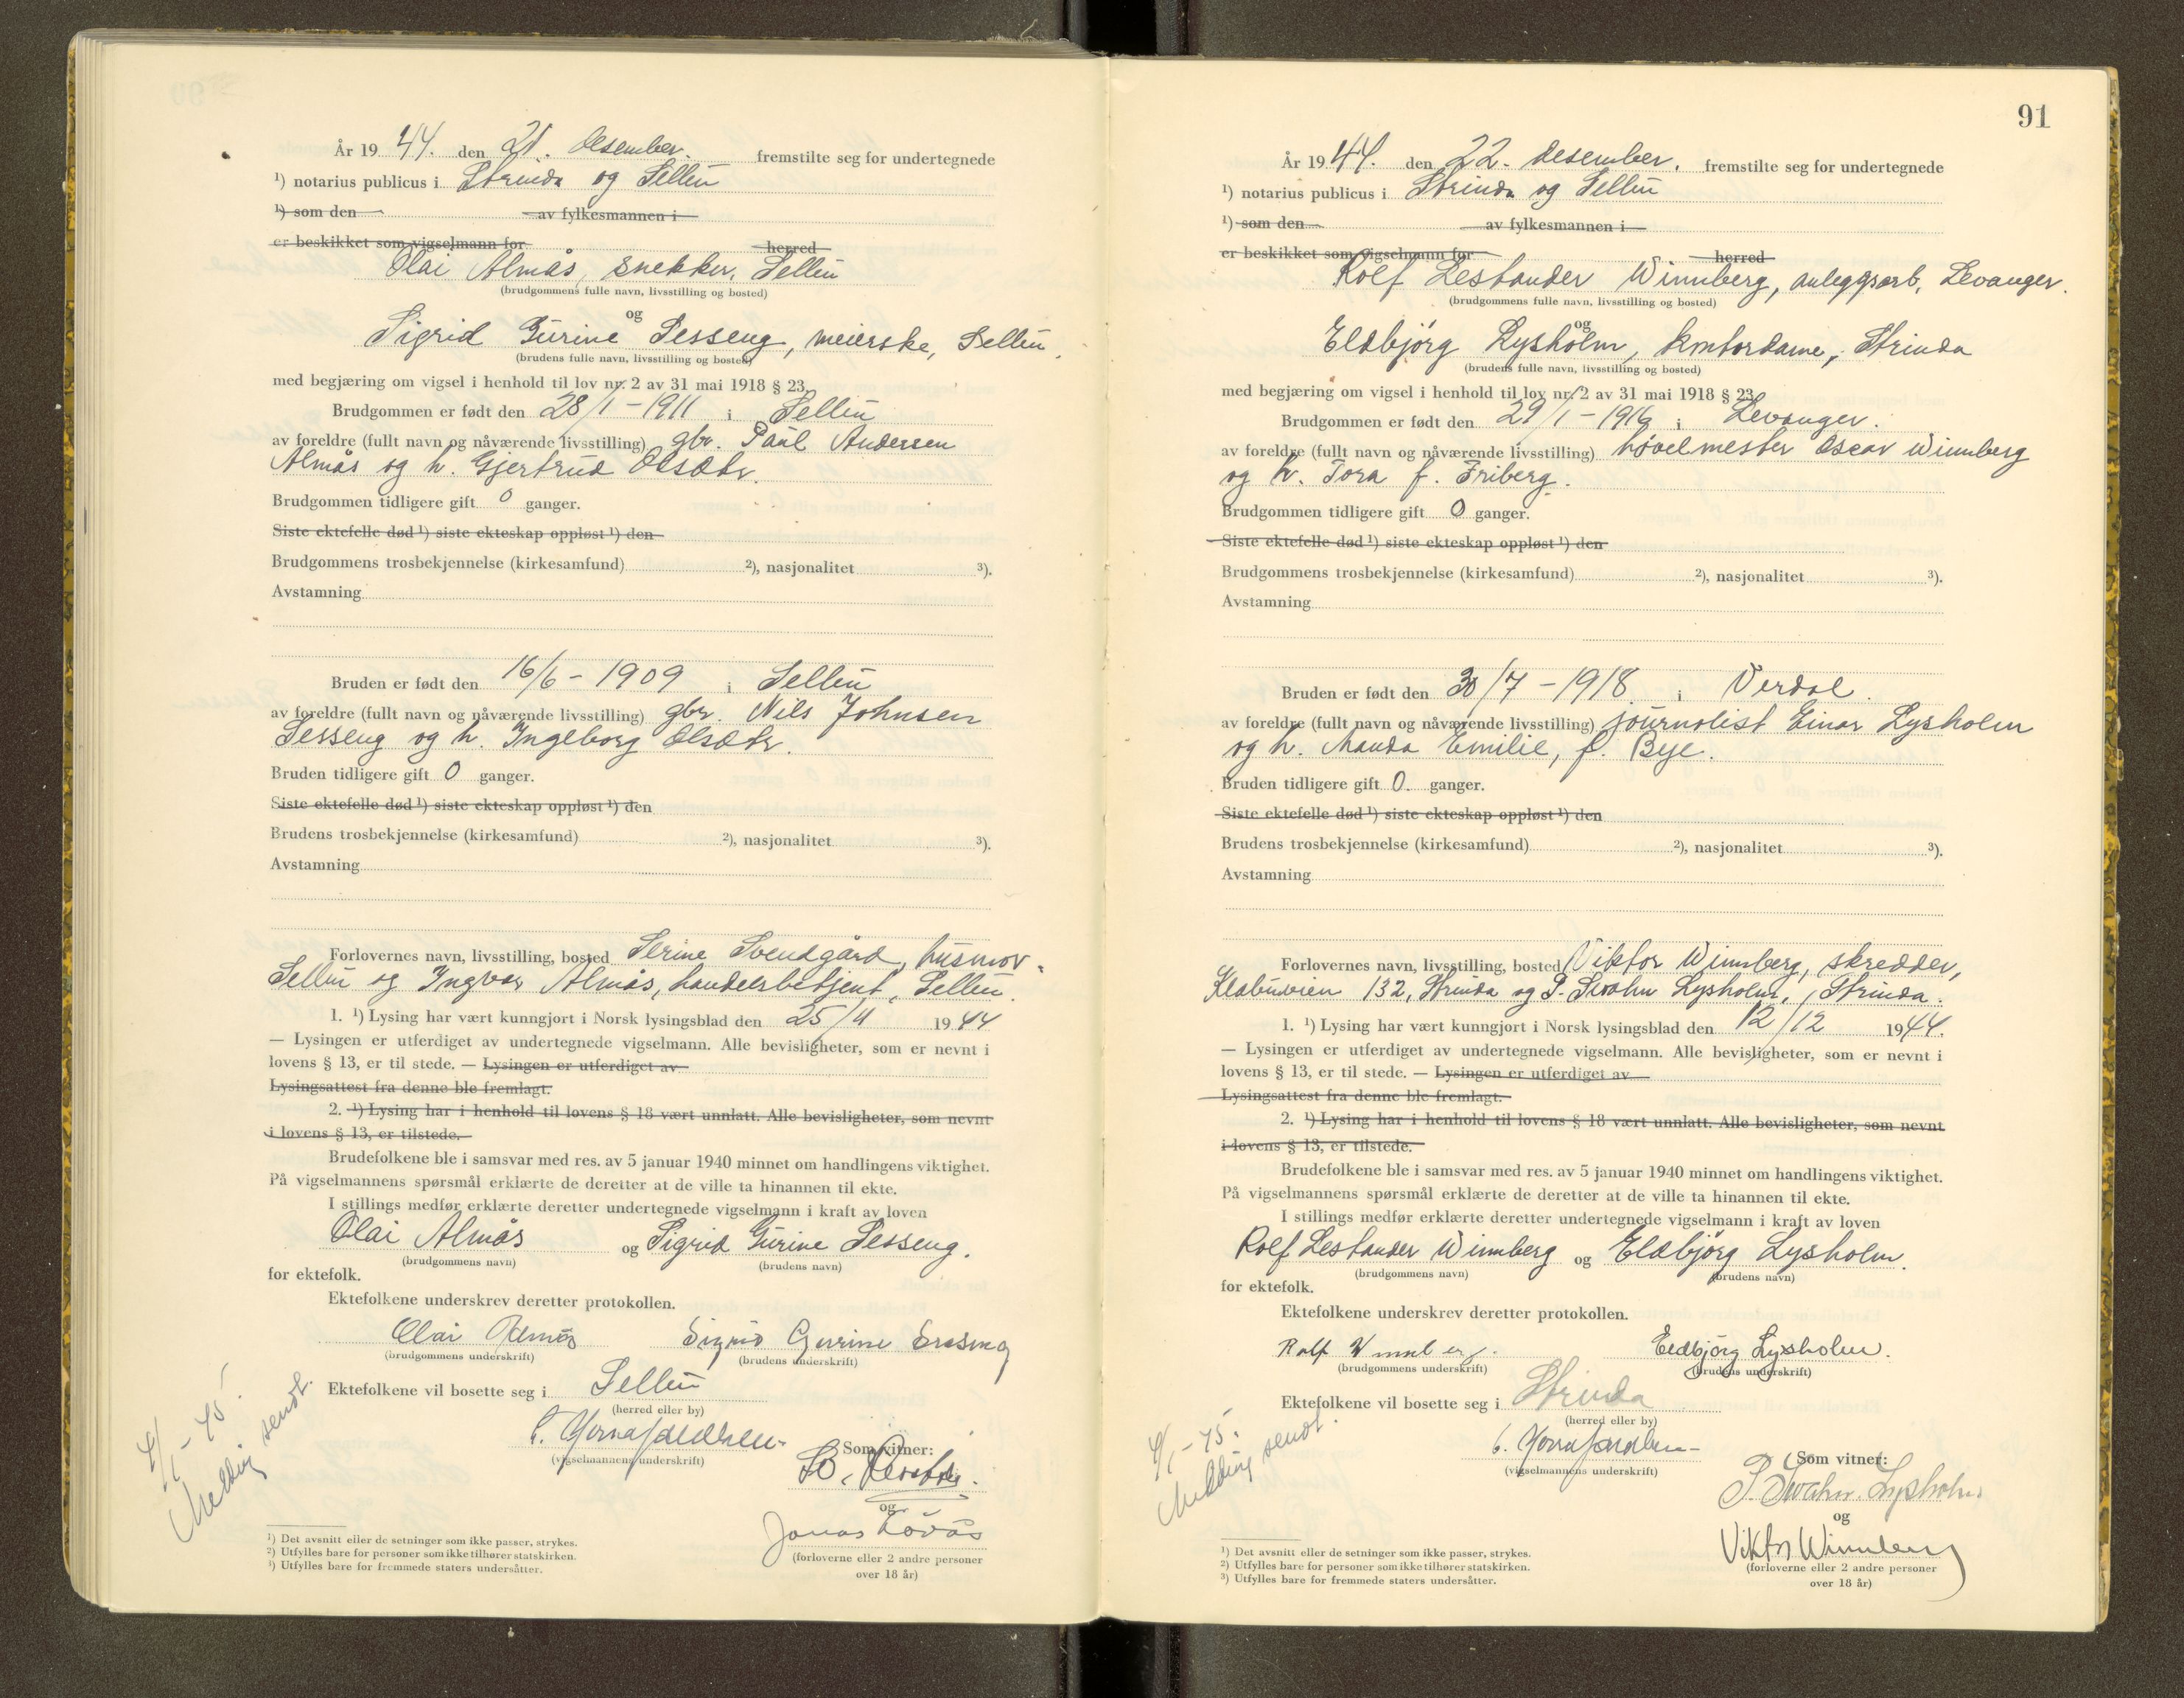 År 1944. den 21. desember. fremstilte seg for undertegnede
¹) notarius publicus i Strinda og Selbu
¹) som den av fylkesmannen i
er beskikket som vigselmann for herred
Olai Almås, snekker, Selbu
(brudgommens fulle navn, livsstilling og bosted)
og
Sigrid Gurine Sesseng, meierske, Selbu.
(brudens fulle navn, livsstilling og bosted)
med begjæring om vigsel i henhold til lov nr. 2 av 31 mai 1918 § 23.
Brudgommen er født den 28/1-1911 i Selbu
av foreldre (fullt navn og nåværende livsstilling) gbr. Paul Andersen
Almås og h. Gjertrud Olsdtr.
Brudgommen tidligere gift 0 ganger.
Siste ektefelle død ¹) siste ekteskap oppløst ¹) den
Brudgommens trosbekjennelse (kirkesamfund) ²), nasjonalitet ³).
Avstamning
Bruden er født den 16/6-1909 i Selbu
av foreldre (fullt navn og nåværende livsstilling) gbr. Nils Johnsen
Sesseng og h. Ingeborg Olsdtr.
Bruden tidligere gift 0 ganger.
Siste ektefelle død ¹) siste ekteskap oppløst ¹) den
Brudens trosbekjennelse (kirkesamfund) ²), nasjonalitet ³).
Avstamning
Forlovernes navn, livsstilling, bosted Serine Svendgård, husmor,
Selbu og Ingvar Almås, handelsbetjent, Selbu.
1. ¹) Lysing har vært kunngjort i Norsk lysingsblad den 25/11 1944
— Lysingen er utferdiget av undertegnede vigselmann. Alle bevisligheter, som er nevnt i
lovens § 13, er til stede. — Lysingen er utferdiget av
Lysingsattest fra denne ble fremlagt.
2. ¹) Lysing har i henhold til lovens § 18 vært unnlatt. Alle bevisligheter, som nevnt
i lovens § 13, er tilstede.
Brudefolkene ble i samsvar med res. av 5 januar 1940 minnet om handlingens viktighet.
På vigselmannens spørsmål erklærte de deretter at de ville ta hinannen til ekte.
I stillings medfør erklærte deretter undertegnede vigselmann i kraft av loven
Olai Almås og Sigrid Gurine Sesseng.
(brudgommens navn) (brudens navn)
for ektefolk.
Ektefolkene underskrev deretter protokollen.
Olai Almås Sigrid Gurine Sesseng
(brudgommens underskrift) (brudens underskrift)
Ektefolkene vil bosette seg i Selbu
(herred eller by)
4/1-45.
Melding sendt.
(vigselmannens underskrift)
Som vitner:
og
Jonas Løvås
(forloverne eller 2 andre personer
over 18 år)
¹) Det avsnitt eller de setninger som ikke passer, strykes.
²) Utfylles bare for personer som ikke tilhører statskirken.
³) Utfylles bare for fremmede staters undersåtter.
91
År 1944. den 22. desember. fremstilte seg for undertegnede
¹) notarius publicus i Strinda og Selbu
¹) som den av fylkesmannen i
er beskikket som vigselmann for herred
Rolf Lestander Winnberg, anleggsarb, Levanger.
(brudgommens fulle navn, livsstilling og bosted)
og
Eldbjørg Lysholm, kontordame, Strinda
(brudens fulle navn, livsstilling og bosted)
med begjæring om vigsel i henhold til lov nr. 2 av 31 mai 1918 § 23.
Brudgommen er født den 29/1-1916 i Levanger.
av foreldre (fullt navn og nåværende livsstilling) høvelmester Oscar Winnberg
og h. Tora f. Friberg.
Brudgommen tidligere gift 0 ganger.
Siste ektefelle død ¹) siste ekteskap oppløst ¹) den
Brudgommens trosbekjennelse (kirkesamfund) ²), nasjonalitet ³).
Avstamning
Bruden er født den 30/7-1918 i Verdal.
av foreldre (fullt navn og nåværende livsstilling) journalist Einar Lysholm
og h. Manda Emilie, f. Bye.
Bruden tidligere gift 0. ganger.
Siste ektefelle død ¹) siste ekteskap oppløst ¹) den
Brudens trosbekjennelse (kirkesamfund) ²), nasjonalitet ³).
Avstamning
Forlovernes navn, livsstilling, bosted Viktor Winnberg, skredder,
Klæbuveien 132, Strinda og P. Swahn Lysholm, Strinda.
1. ¹) Lysing har vært kunngjort i Norsk lysingsblad den 12/12 1944.
— Lysingen er utferdiget av undertegnede vigselmann. Alle bevisligheter, som er nevnt i
lovens § 13, er til stede. — Lysingen er utferdiget av
Lysingsattest fra denne ble fremlagt.
2. ¹) Lysing har i henhold til lovens § 18 vært unnlatt. Alle bevisligheter, som nevnt
i lovens § 13, er tilstede.
Brudefolkene ble i samsvar med res. av 5 januar 1940 minnet om handlingens viktighet.
På vigselmannens spørsmål erklærte de deretter at de ville ta hinannen til ekte.
I stillings medfør erklærte deretter undertegnede vigselmann i kraft av loven
Rolf Lestander Winnberg og Eldbjørg Lysholm.
(brudgommens navn) (brudens navn)
for ektefolk.
Ektefolkene underskrev deretter protokollen.
Rolf Winnberg. Eldbjørg Lysholm.
(brudgommens underskrift) (brudens underskrift)
Ektefolkene vil bosette seg i Strinda
(herred eller by)
4/1-45.
Melding sendt.
(vigselmannens underskrift)
Som vitner:
P. Swahn Lysholm
og
Viktor Winnberg
(forloverne eller 2 andre personer
over 18 år)
¹) Det avsnitt eller de setninger som ikke passer, strykes.
²) Utfylles bare for personer som ikke tilhører statskirken.
³) Utfylles bare for fremmede staters undersåtter.